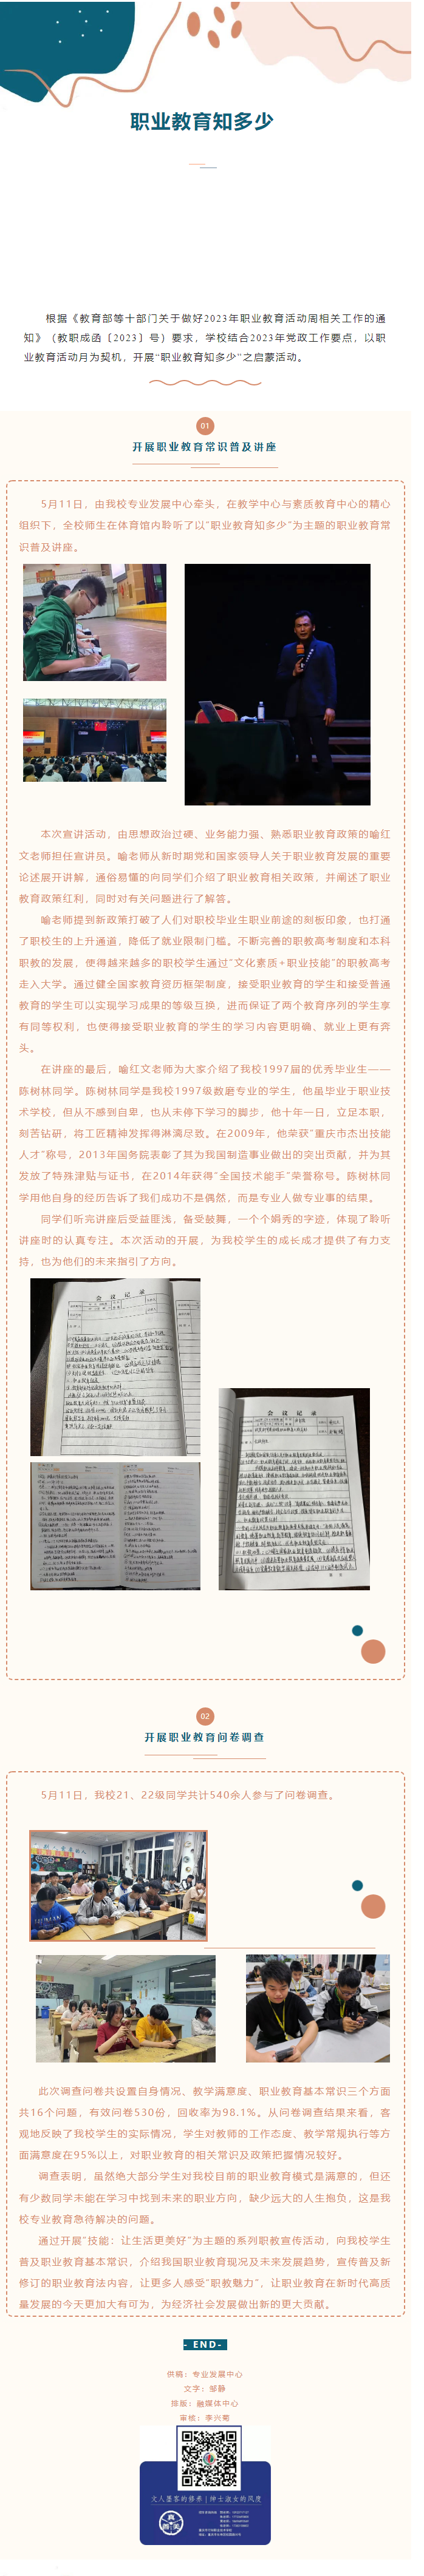 职业教育知多少
根据《教育部等十部门关于做好2023年职业教育活动周相关工作的通
知》（教职成函〔2023〕号）要求，学校结合2023年党政工作要点，以职
业教育活动月为契机，开展“职业教育知多少”之启蒙活动。
01
开展职业教育常识普及讲座
5月11日，由我校专业发展中心牵头，在教学中心与素质教育中心的精心
组织下，全校师生在体育馆内聆听了以“职业教育知多少”为主题的职业教育常
识普及讲座。
本次宣讲活动，由思想政治过硬、业务能力强、熟悉职业教育政策的喻红
文老师担任宣讲员。喻老师从新时期党和国家领导人关于职业教育发展的重要
论述展开讲解，通俗易懂的向同学们介绍了职业教育相关政策，并阐述了职业
教育政策红利，同时对有关问题进行了解答。
喻老师提到新政策打破了人们对职校毕业生职业前途的刻板印象，也打通
了职校生的上升通道，降低了就业限制门槛。不断完善的职教高考制度和本科
职教的发展，使得越来越多的职校学生通过“文化素质+职业技能”的职教高考
走入大学。通过健全国家教育资历框架制度，接受职业教育的学生和接受普通
教育的学生可以实现学习成果的等级互换，进而保证了两个教育序列的学生享
有同等权利，也使得接受职业教育的学生的学习内容更明确、就业上更有奔
头。
在讲座的最后，喻红文老师为大家介绍了我校1997届的优秀毕业生——
陈树林同学。陈树林同学是我校1997级数磨专业的学生，他虽毕业于职业技
术学校，但从不感到自卑，也从未停下学习的脚步，他十年一日，立足本职，
刻苦钻研，将工匠精神发挥得淋漓尽致。在2009年，他荣获“重庆市杰出技能
人才”称号，2013年国务院表彰了其为我国制造事业做出的突出贡献，并为其
发放了特殊津贴与证书，在2014年获得“全国技术能手”荣誉称号。陈树林同
学用他自身的经历告诉了我们成功不是偶然，而是专业人做专业事的结果。
同学们听完讲座后受益匪浅，备受鼓舞，一个个娟秀的字迹，体现了聆听
讲座时的认真专注。本次活动的开展，为我校学生的成长成才提供了有力支
持，也为他们的未来指引了方向。
会议记录
会议记录
02
开展职业教育问卷调查
5月11日，我校21、22级同学共计540余人参与了问卷调查。
此次调查问卷共设置自身情况、教学满意度、职业教育基本常识三个方面
共16个问题，有效问卷530份，回收率为98.1%。从问卷调查结果来看，客
观地反映了我校学生的实际情况，学生对教师的工作态度、教学常规执行等方
面满意度在95%以上，对职业教育的相关常识及政策把握情况较好。
调查表明，虽然绝大部分学生对我校目前的职业教育模式是满意的，但还
有少数同学未能在学习中找到未来的职业方向，缺少远大的人生抱负，这是我
校专业教育急待解决的问题。
通过开展“技能：让生活更美好”为主题的系列职教宣传活动，向我校学生
普及职业教育基本常识，介绍我国职业教育现况及未来发展趋势，宣传普及新
修订的职业教育法内容，让更多人感受“职教魅力”，让职业教育在新时代高质
量发展的今天更加大有可为，为经济社会发展做出新的更大贡献。
- END-
供稿：专业发展中心
文字：邹静
排版：融媒体中心
审核：李兴菊
文人墨客的修养｜绅士淑女的风度